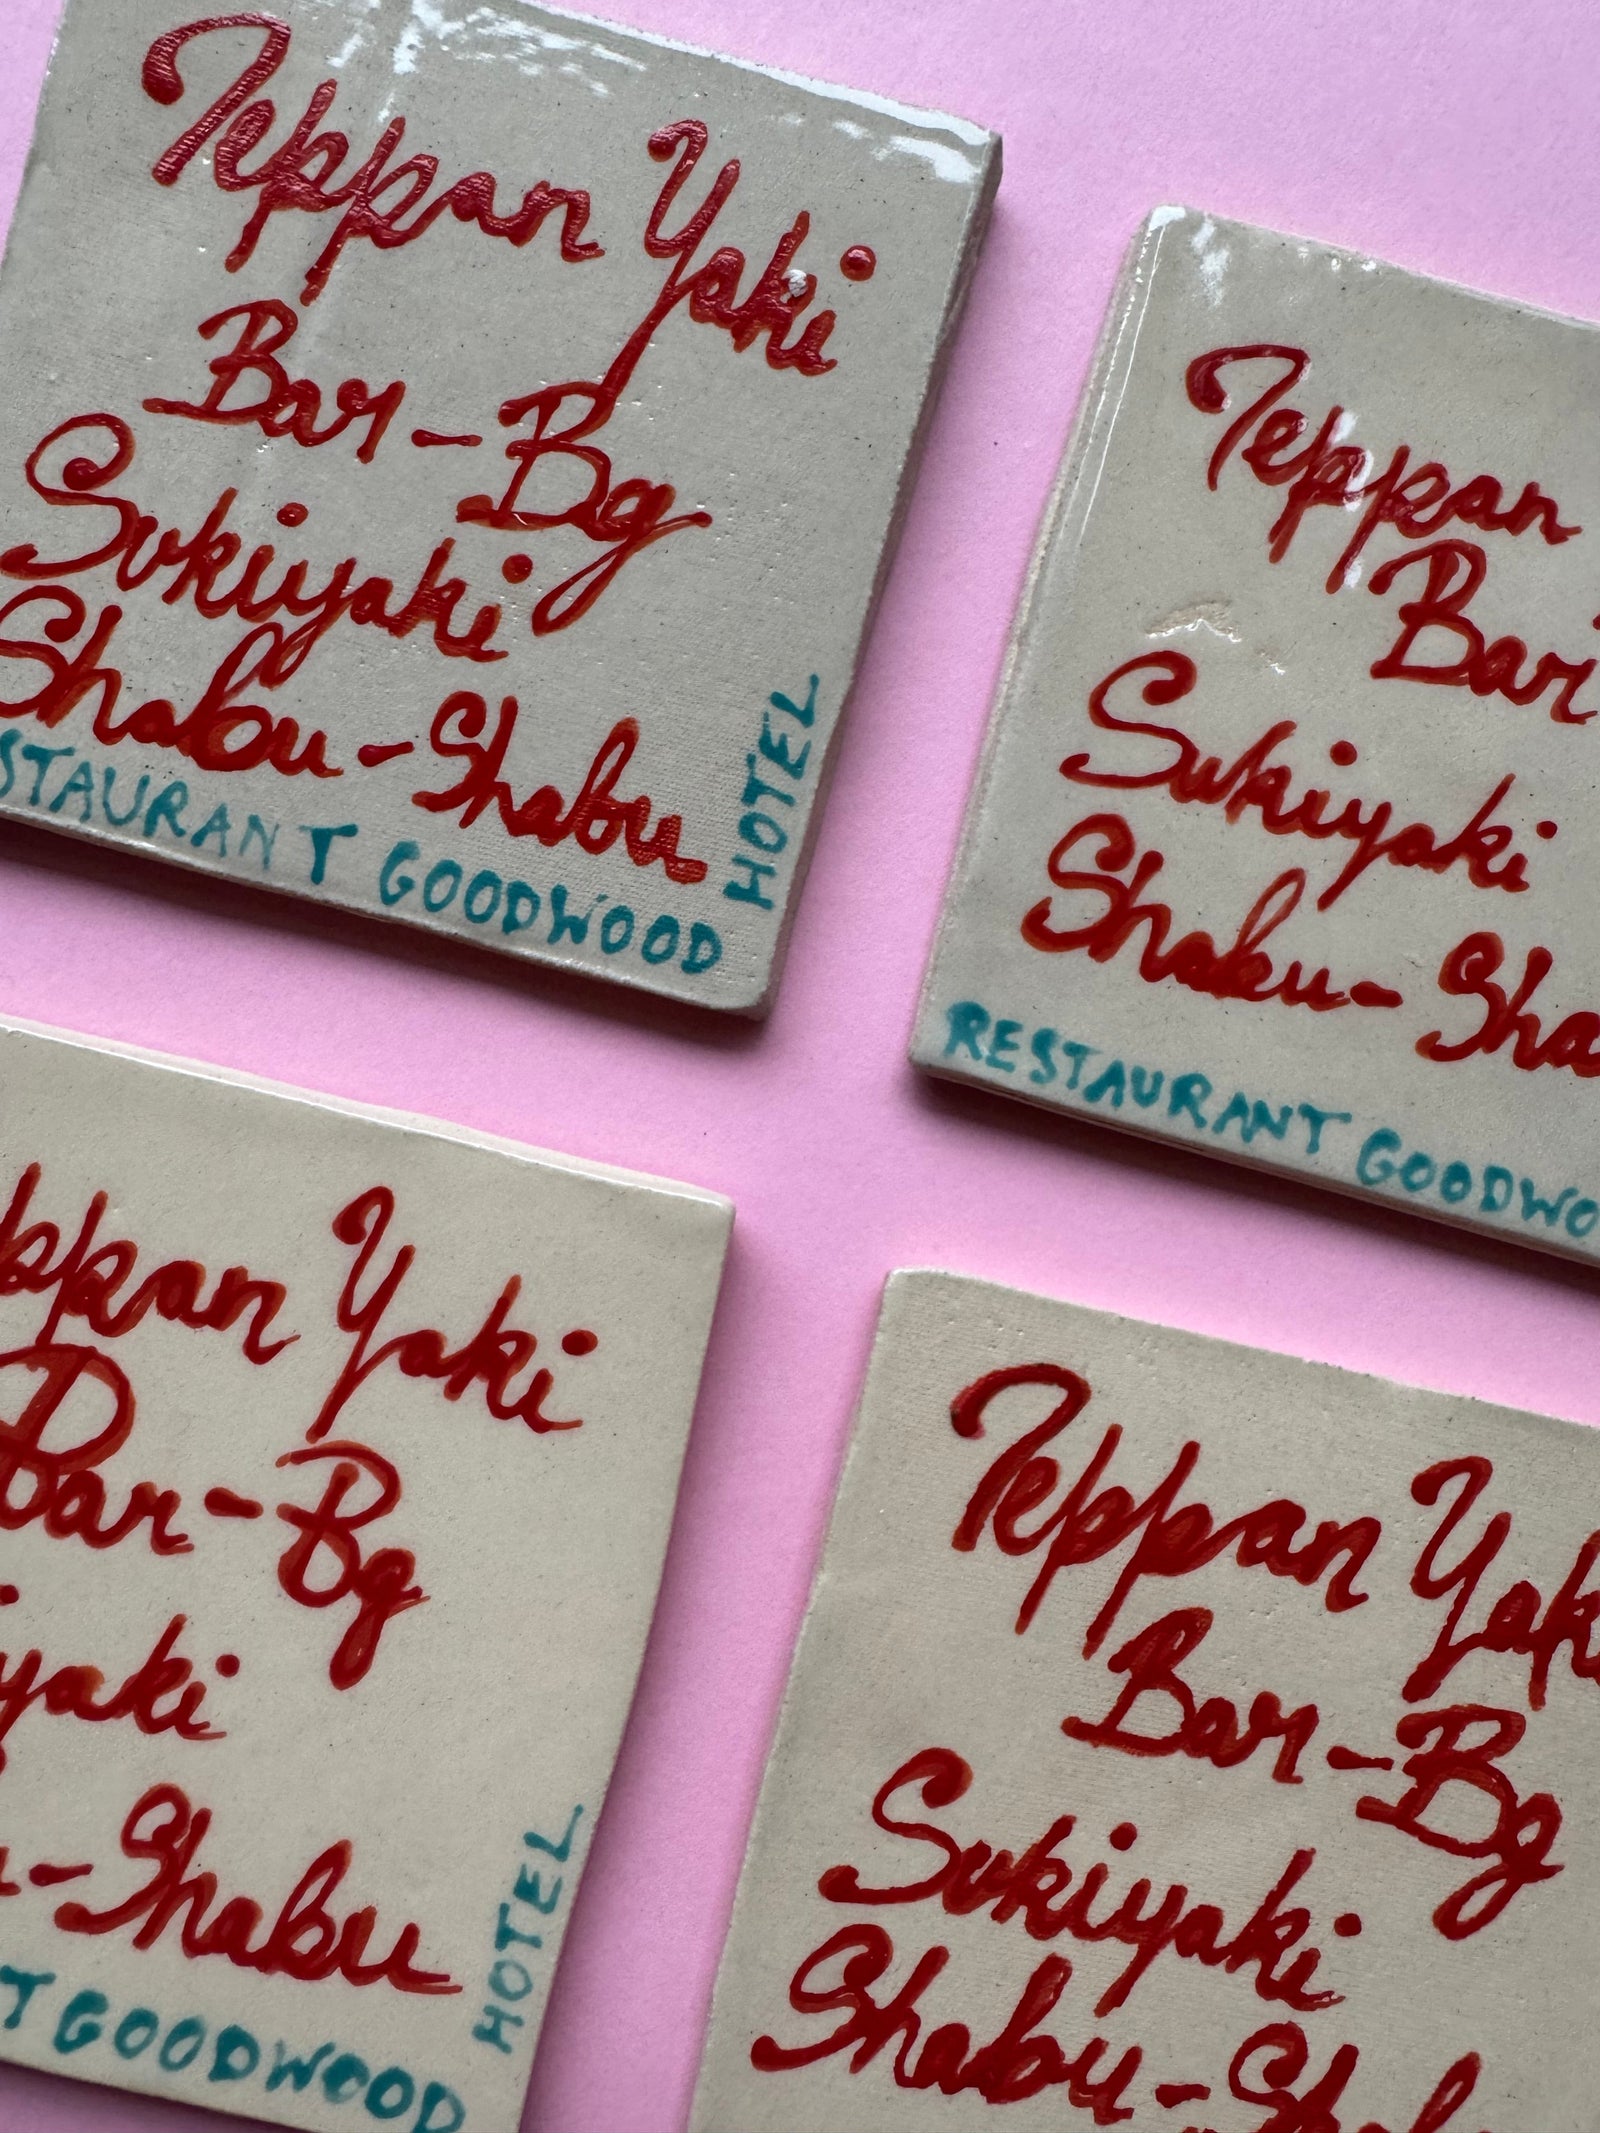 Teppan Yaki
Bar-Bg
Sukiyaki
Shabu-Shabu
STAURANT GOODWOOD
HOTEL
Teppan
Bar
Sukiyaki
Shabu-Sha
RESTAURANT GOODWOO
ppan Yaki
Bar-Bg
iyaki
-Shabu
T GOODWOOD
HOTEL
Teppan Yak
Bar-Bg
Sukiyaki
Shabu-Shab